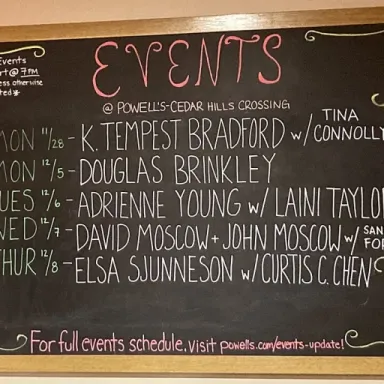 Events
EVENTS
rt @ 7PM
ess otherwise
ted*
@ POWELL'S-CEDAR HILLS CROSSING
MON 11/28 - K. TEMPEST BRADFORD w/ TINA CONNOLLY
MON 12/5 - DOUGLAS BRINKLEY
UES 12/6 - ADRIENNE YOUNG w/ LAINI TAYLO
WED 12/7 - DAVID MOSCOW + JOHN MOSCOW w/ SAN FO
THUR 12/8 - ELSA SJUNNESON w/ CURTIS C. CHEN
For full events schedule, visit powells.com/events-update!